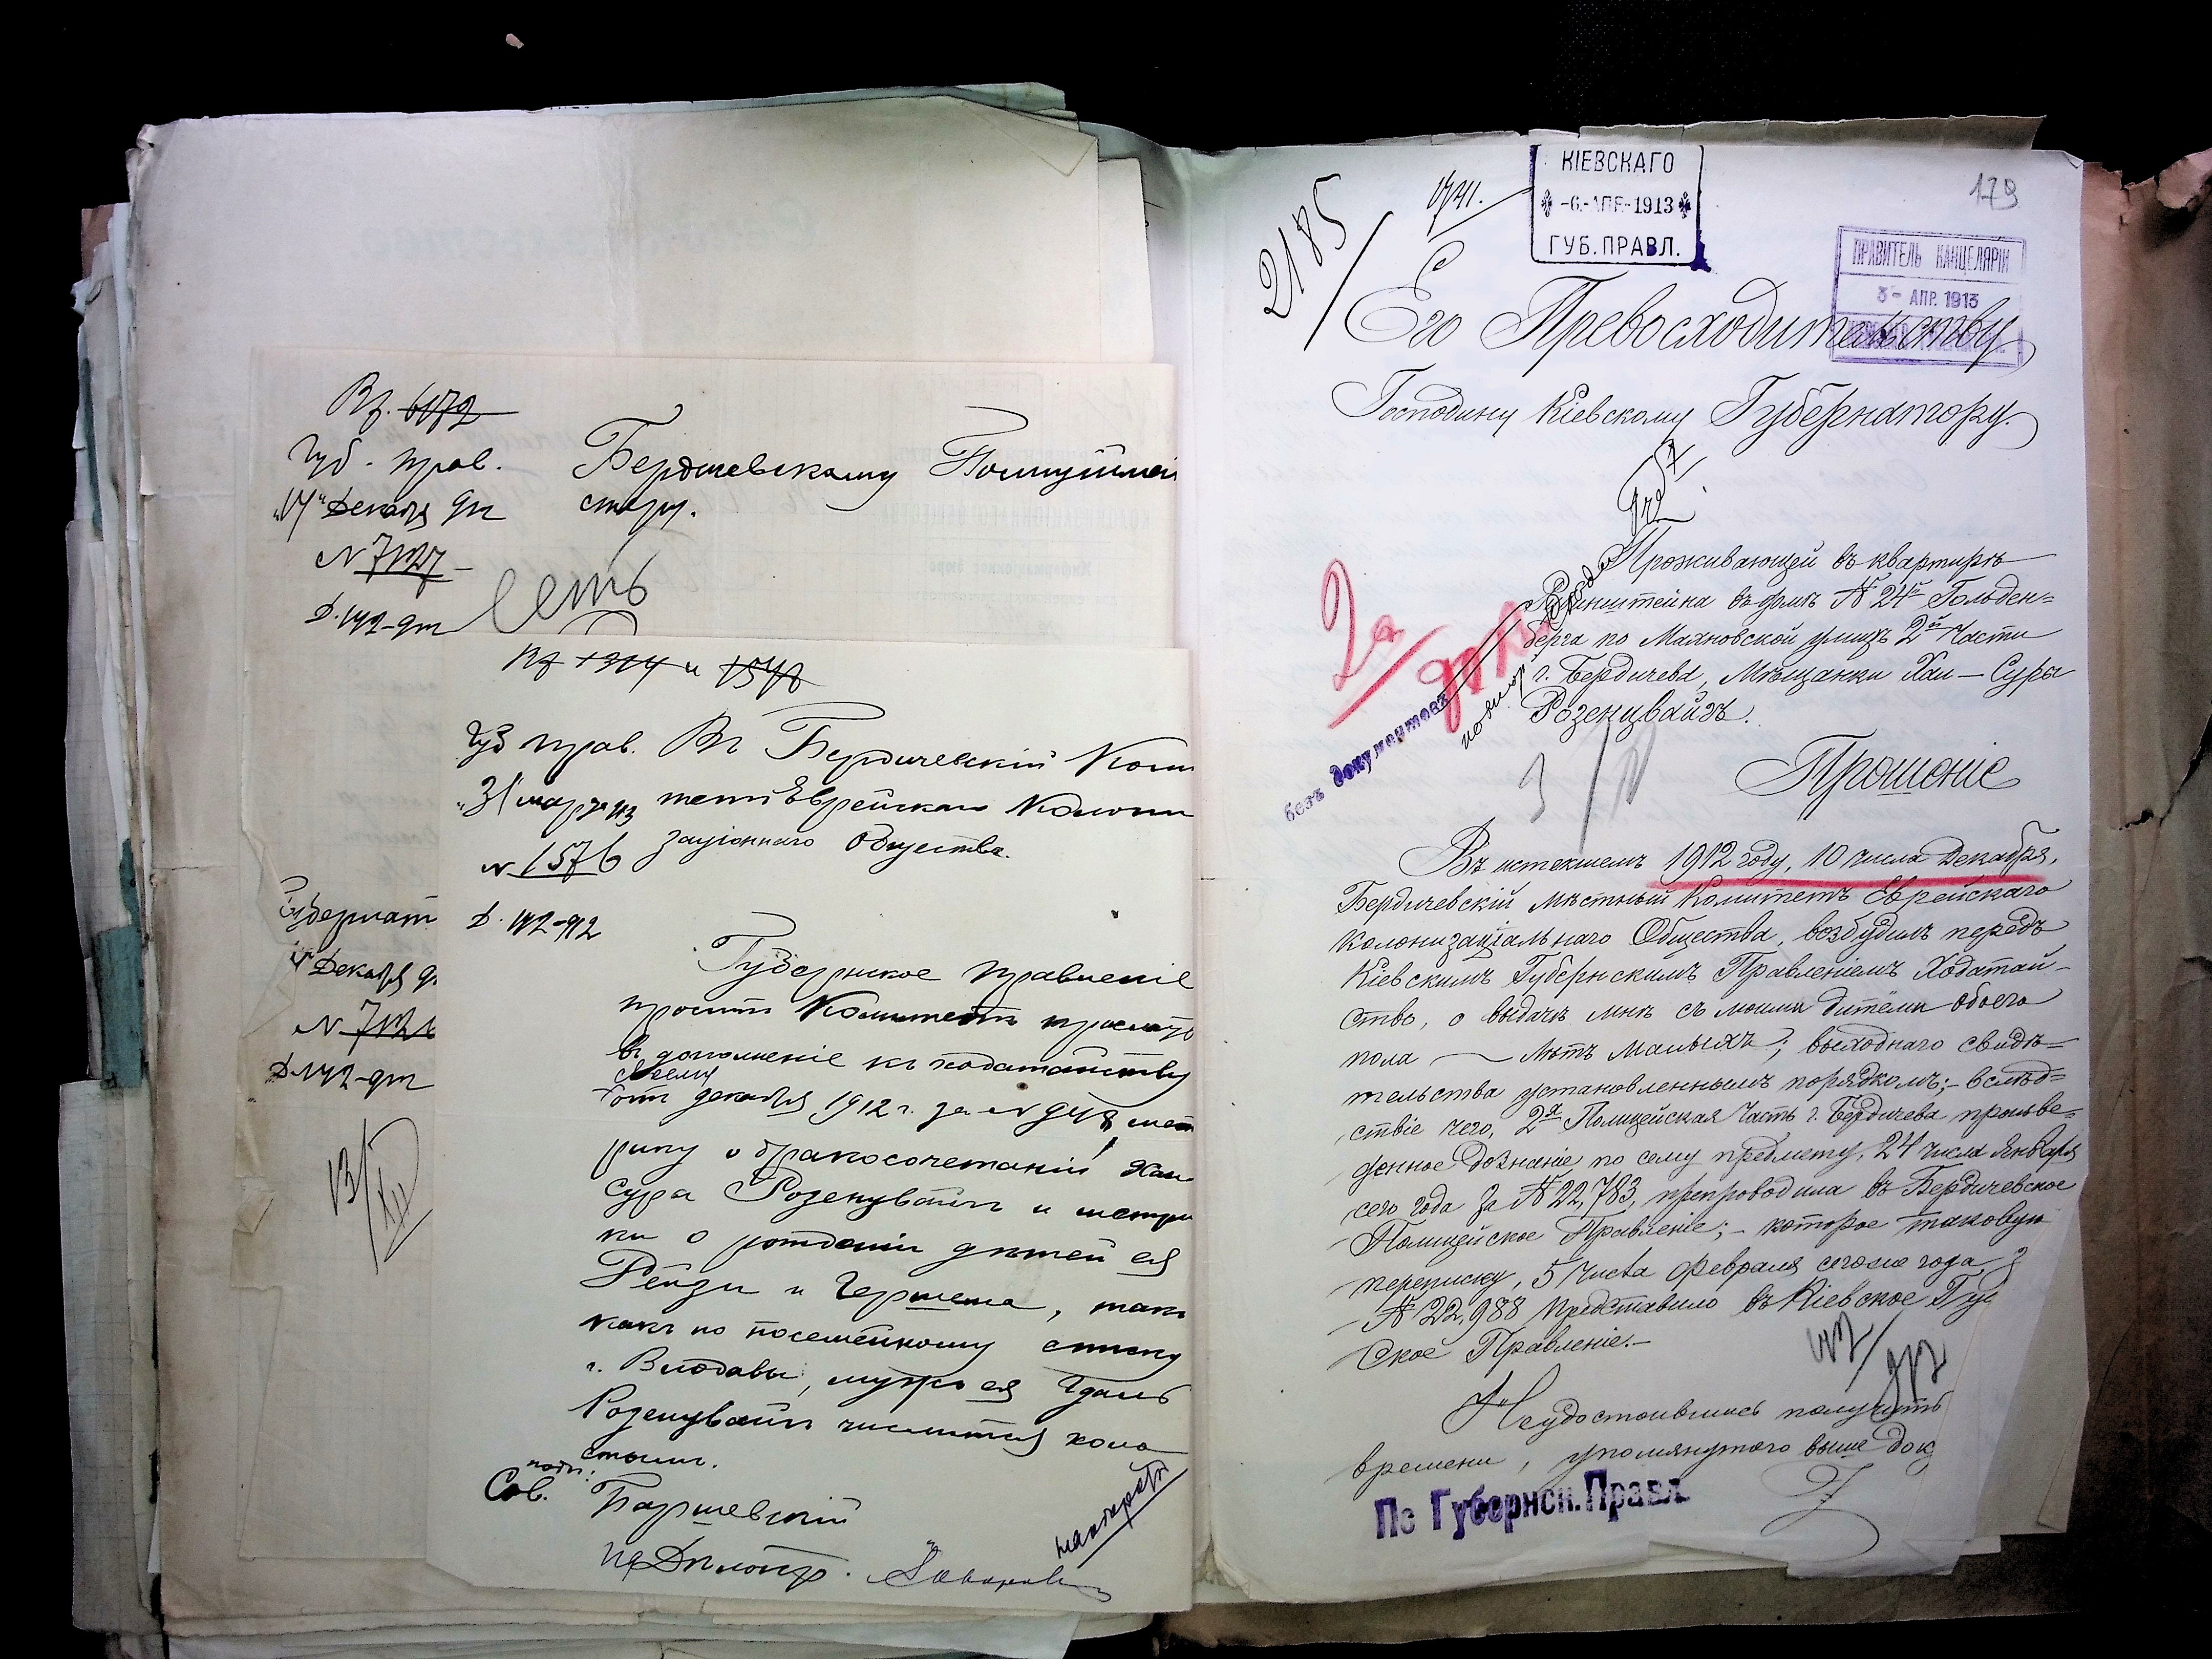 Вз. 6172
Губ. прав.
Декабря
N 7127
Д. 142-912
Бердичевскому Полицей
стеру.
Вз 1314 и 1578
Губ прав.
"31 марта 913
N 1576
Д. 142-912
Въ Бердичевскій Коми
тетъ Еврейскаго Колони
заціоннаго Общества.
Губернское Правленіе
проситъ Комитетъ прислать
въ дополненіе къ ходатайству
своему
отъ декабря 1912 г. за N 948, мет
рику о бракосочетаніи Хаи
Сура Розенцвайгъ и метри
ки о рожденіи дѣтей ея
Рейзи и Гершека, такъ
какъ по посемейному списку
г. Влодавы, мужъ ея
Розенцвайгъ числится холо
стымъ.
подп.:
Сов. Баршевскій
Губернат
Декабря
N 7126
Д. 142-912
13/XII
2185
КІЕВСКАГО
-6-АПР-1913
ГУБ. ПРАВЛ.
179
ПРАВИТЕЛЬ КАНЦЕЛЯРІИ
3- АПР. 1913
Его Превосходительству
Господину Кіевскому Губернатору.
Проживающей въ квартирѣ
въ домѣ № 24й Гольден=
берга по Махновской улицѣ 2й Части
г. Бердичева, Мѣщанки Хаи-Суры
Розенцвайгъ.
безъ документовъ
Прошеніе
Въ истекшемъ 1912 году, 10 числа Декабря,
Бердичевскій мѣстный Комитетъ Еврейскаго
Колонизаціальнаго Общества, возбудилъ передъ
Кіевскимъ Губернскимъ Правленіемъ Ходатай-
ство, о выдачѣ мнѣ съ моими дитёми обоего
пола — лѣтъ малыхъ; выходнаго свидѣ=
тельства установленнымъ порядкомъ;- вслѣд=
ствіе чего, 2я Полицейская Часть г. Бердичева произве=
денное дознаніе по сему предмету, 24 числа Января
сего года за № 22,783, препроводила въ Бердичевское
Полицейское Правленіе;- которое таковую
переписку, 5 числа Февраля сего года
№ 22,988 представило въ Кіевское Гу
ское Правленіе.-
142/912
Неудостоившись получить
времени, упомянутого выше док
По Губернск. Правл.